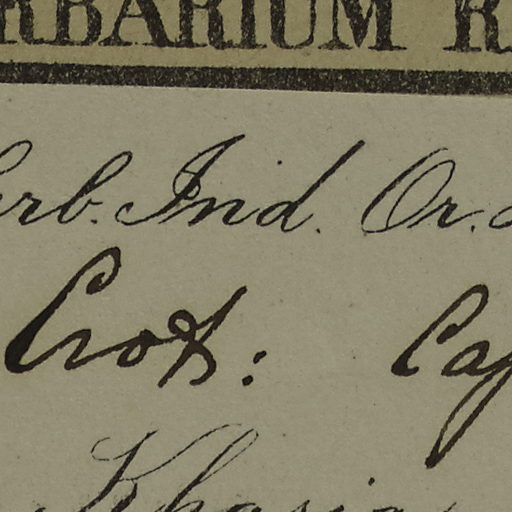 RBARIUM R
erb. Ind. Or.
Crot: Cap
Khasia